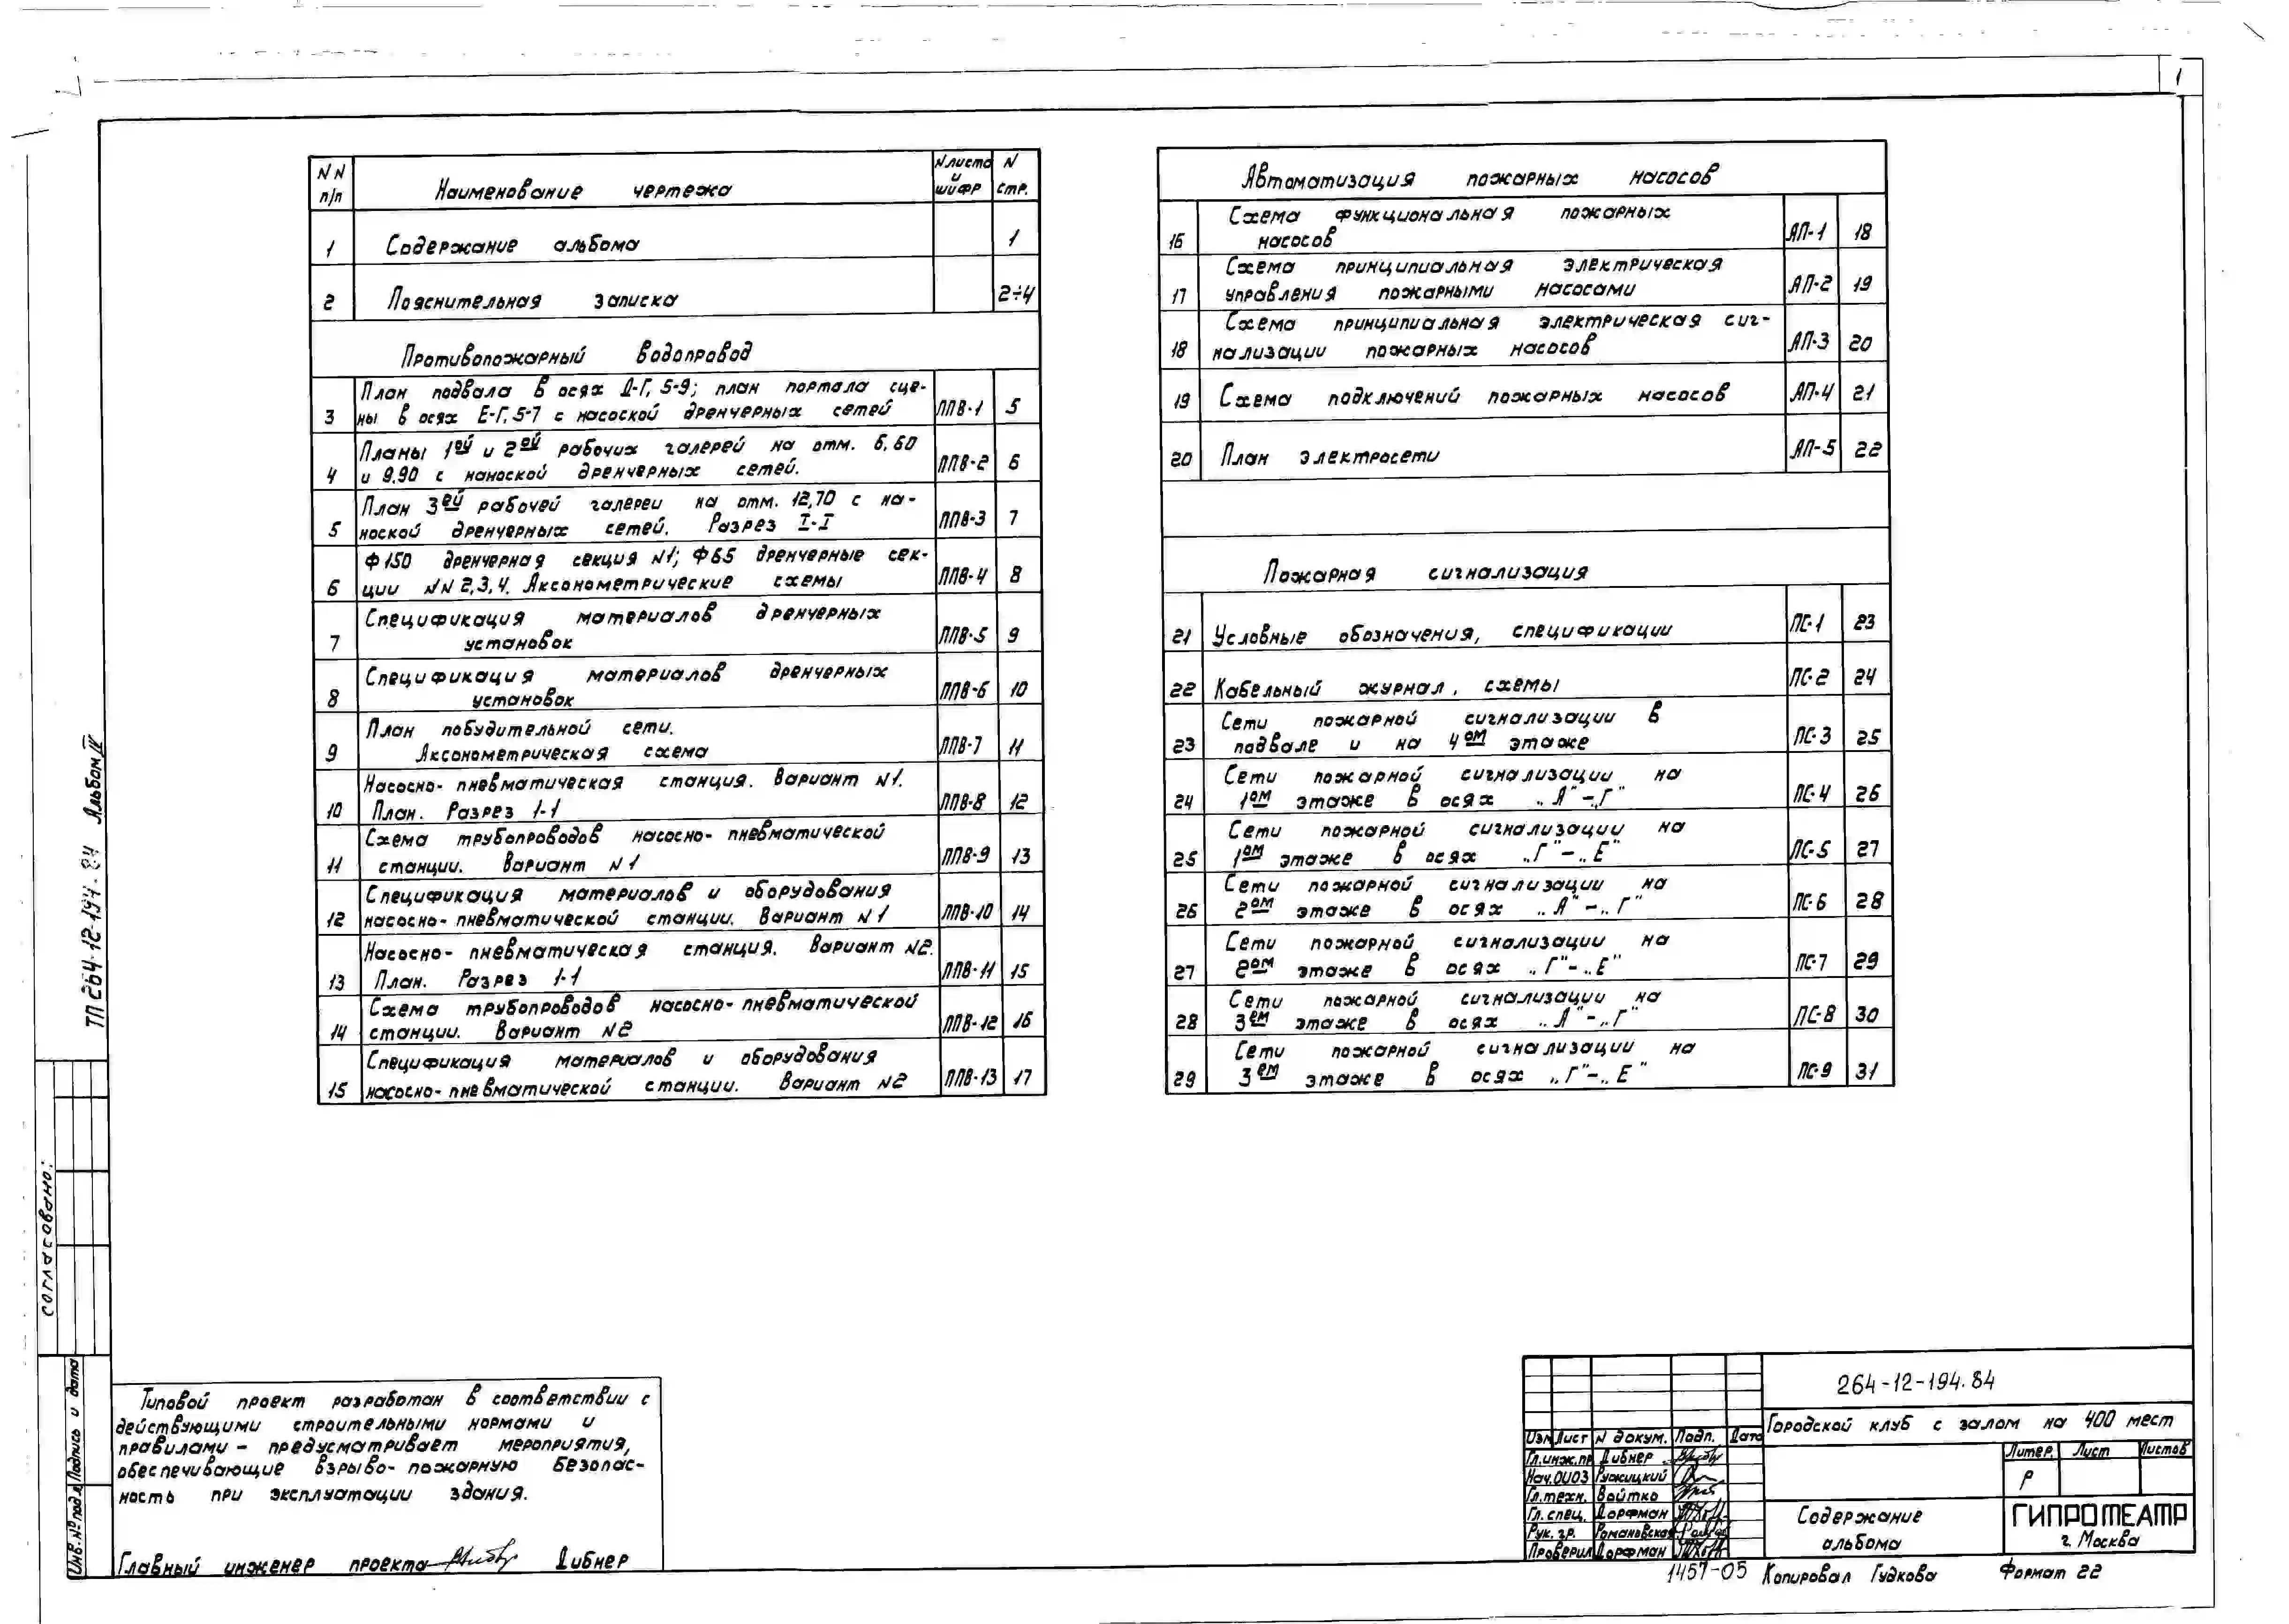 1
NN п/п
Наименование чертежа
N листа и шифр
N стр.
1 Содержание альбома 1
2 Пояснительная записка 2÷4
Противопожарный водопровод
План подвала в осях Д-Г, 5-9; план портала сце-
3 ны в осях Е-Г, 5-7 с насоской дренчерных сетей ППВ-1 5
Планы 1ой и 2ой рабочих галерей на отм. 6,60
4 и 9,90 с наноской дренчерных сетей. ППВ-2 6
План 3ей рабочей галереи на отм. 12,70 с на-
5 ноской дренчерных сетей. Разрез I-I ППВ-3 7
Ф150 дренчерная секция N1; Ф65 дренчерные сек-
6 ции NN 2,3,4. Аксонометрические схемы ППВ-4 8
Спецификация материалов дренчерных
7 установок ППВ-5 9
Спецификация материалов дренчерных
8 установок ППВ-6 10
План побудительной сети.
9 Аксонометрическая схема ППВ-7 11
Насосно-пневматическая станция. Вариант N1.
10 План. Разрез 1-1 ППВ-8 12
Схема трубопроводов насосно-пневматической
11 станции. Вариант N1 ППВ-9 13
Спецификация материалов и оборудования
12 насосно-пневматической станции. Вариант N1 ППВ-10 14
Насосно-пневматическая станция. Вариант N2.
13 План. Разрез 1-1 ППВ-11 15
Схема трубопроводов насосно-пневматической
14 станции. Вариант N2 ППВ-12 16
Спецификация материалов и оборудования
15 насосно-пневматической станции. Вариант N2 ППВ-13 17
Автоматизация пожарных насосов
Схема функциональная пожарных
16 насосов АП-1 18
Схема принципиальная электрическая
17 управления пожарными насосами АП-2 19
Схема принципиальная электрическая сиг-
18 нализации пожарных насосов АП-3 20
19 Схема подключений пожарных насосов АП-4 21
20 План электросети АП-5 22
Пожарная сигнализация
21 Условные обозначения, спецификации ПС-1 23
22 Кабельный журнал, схемы ПС-2 24
Сети пожарной сигнализации в
23 подвале и на 4ом этаже ПС-3 25
Сети пожарной сигнализации на
24 1ом этаже в осях „А"-„Г" ПС-4 26
Сети пожарной сигнализации на
25 1ом этаже в осях „Г"-„Е" ПС-5 27
Сети пожарной сигнализации на
26 2ом этаже в осях „А"-„Г" ПС-6 28
Сети пожарной сигнализации на
27 2ом этаже в осях „Г"-„Е" ПС-7 29
Сети пожарной сигнализации на
28 3ем этаже в осях „А"-„Г" ПС-8 30
Сети пожарной сигнализации на
29 3ем этаже в осях „Г"-„Е" ПС-9 31
ТП 264-12-194.84 Альбом IV
Согласовано:
Подпись и дата
Инв.№ подл.
Типовой проект разработан в соответствии с
действующими строительными нормами и
правилами - предусматривает мероприятия,
обеспечивающие взрыво-пожарную безопас-
ность при эксплуатации здания.
Главный инженер проекта Дибнер
264-12-194.84
Городской клуб с залом на 400 мест
Изм Лист N докум. Подп. Дата
Гл.инж.пр Дибнер
Нач.ОИОЗ Ружицкий
Гл.техн. Войтко
Гл.спец. Дорфман
Рук.гр. Романовская
Проверил Дорфман
Литер. Лист Листов
Р
Содержание
альбома
ГИПРОТЕАТР
г. Москва
1457-05 Копировал Гудкова Формат 22